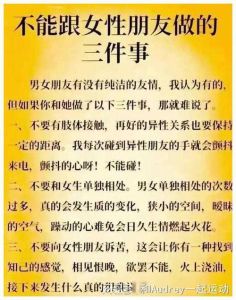 不能跟女性朋友做的
三件事
男女朋友有没有纯洁的友情，我认为有的，
但如果你和她做了以下三件事，那就难说了。
一、不要有肢体接触，再好的异性关系也要保持
一定的距离。我每次碰到异性朋友的手就会颤抖
来电，颤抖的心呀！不能碰！
二、不要和女生单独相处。男女单独相处的次数
过多，真的会发生质的变化，狭小的空间，暧昧
的空气，躁动的心难免会日久生情燃起火花。
三、不要向女性朋友诉苦，这会让你有一种找到
知己的感觉，相见恨晚，欲罢不能，火上浇油，
接下来发生什么真的很难说
Audrey一起运动